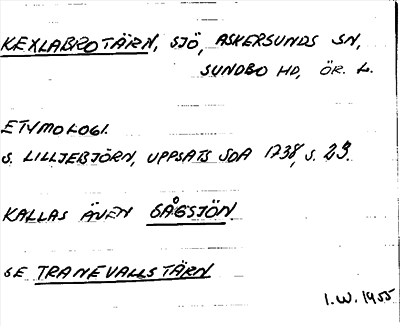 KEXLABROTÄRN, SJÖ, ASKERSUNDS SN,
SUNDBO HD, ÖR. L.
ETYMOLOGI.
S. LILLJEBJÖRN, UPPSATS SOA 1738, S. 29.
KALLAS ÄVEN GÅGSJÖN
SE TRANEVALLSTÄRN
I.W. 1955